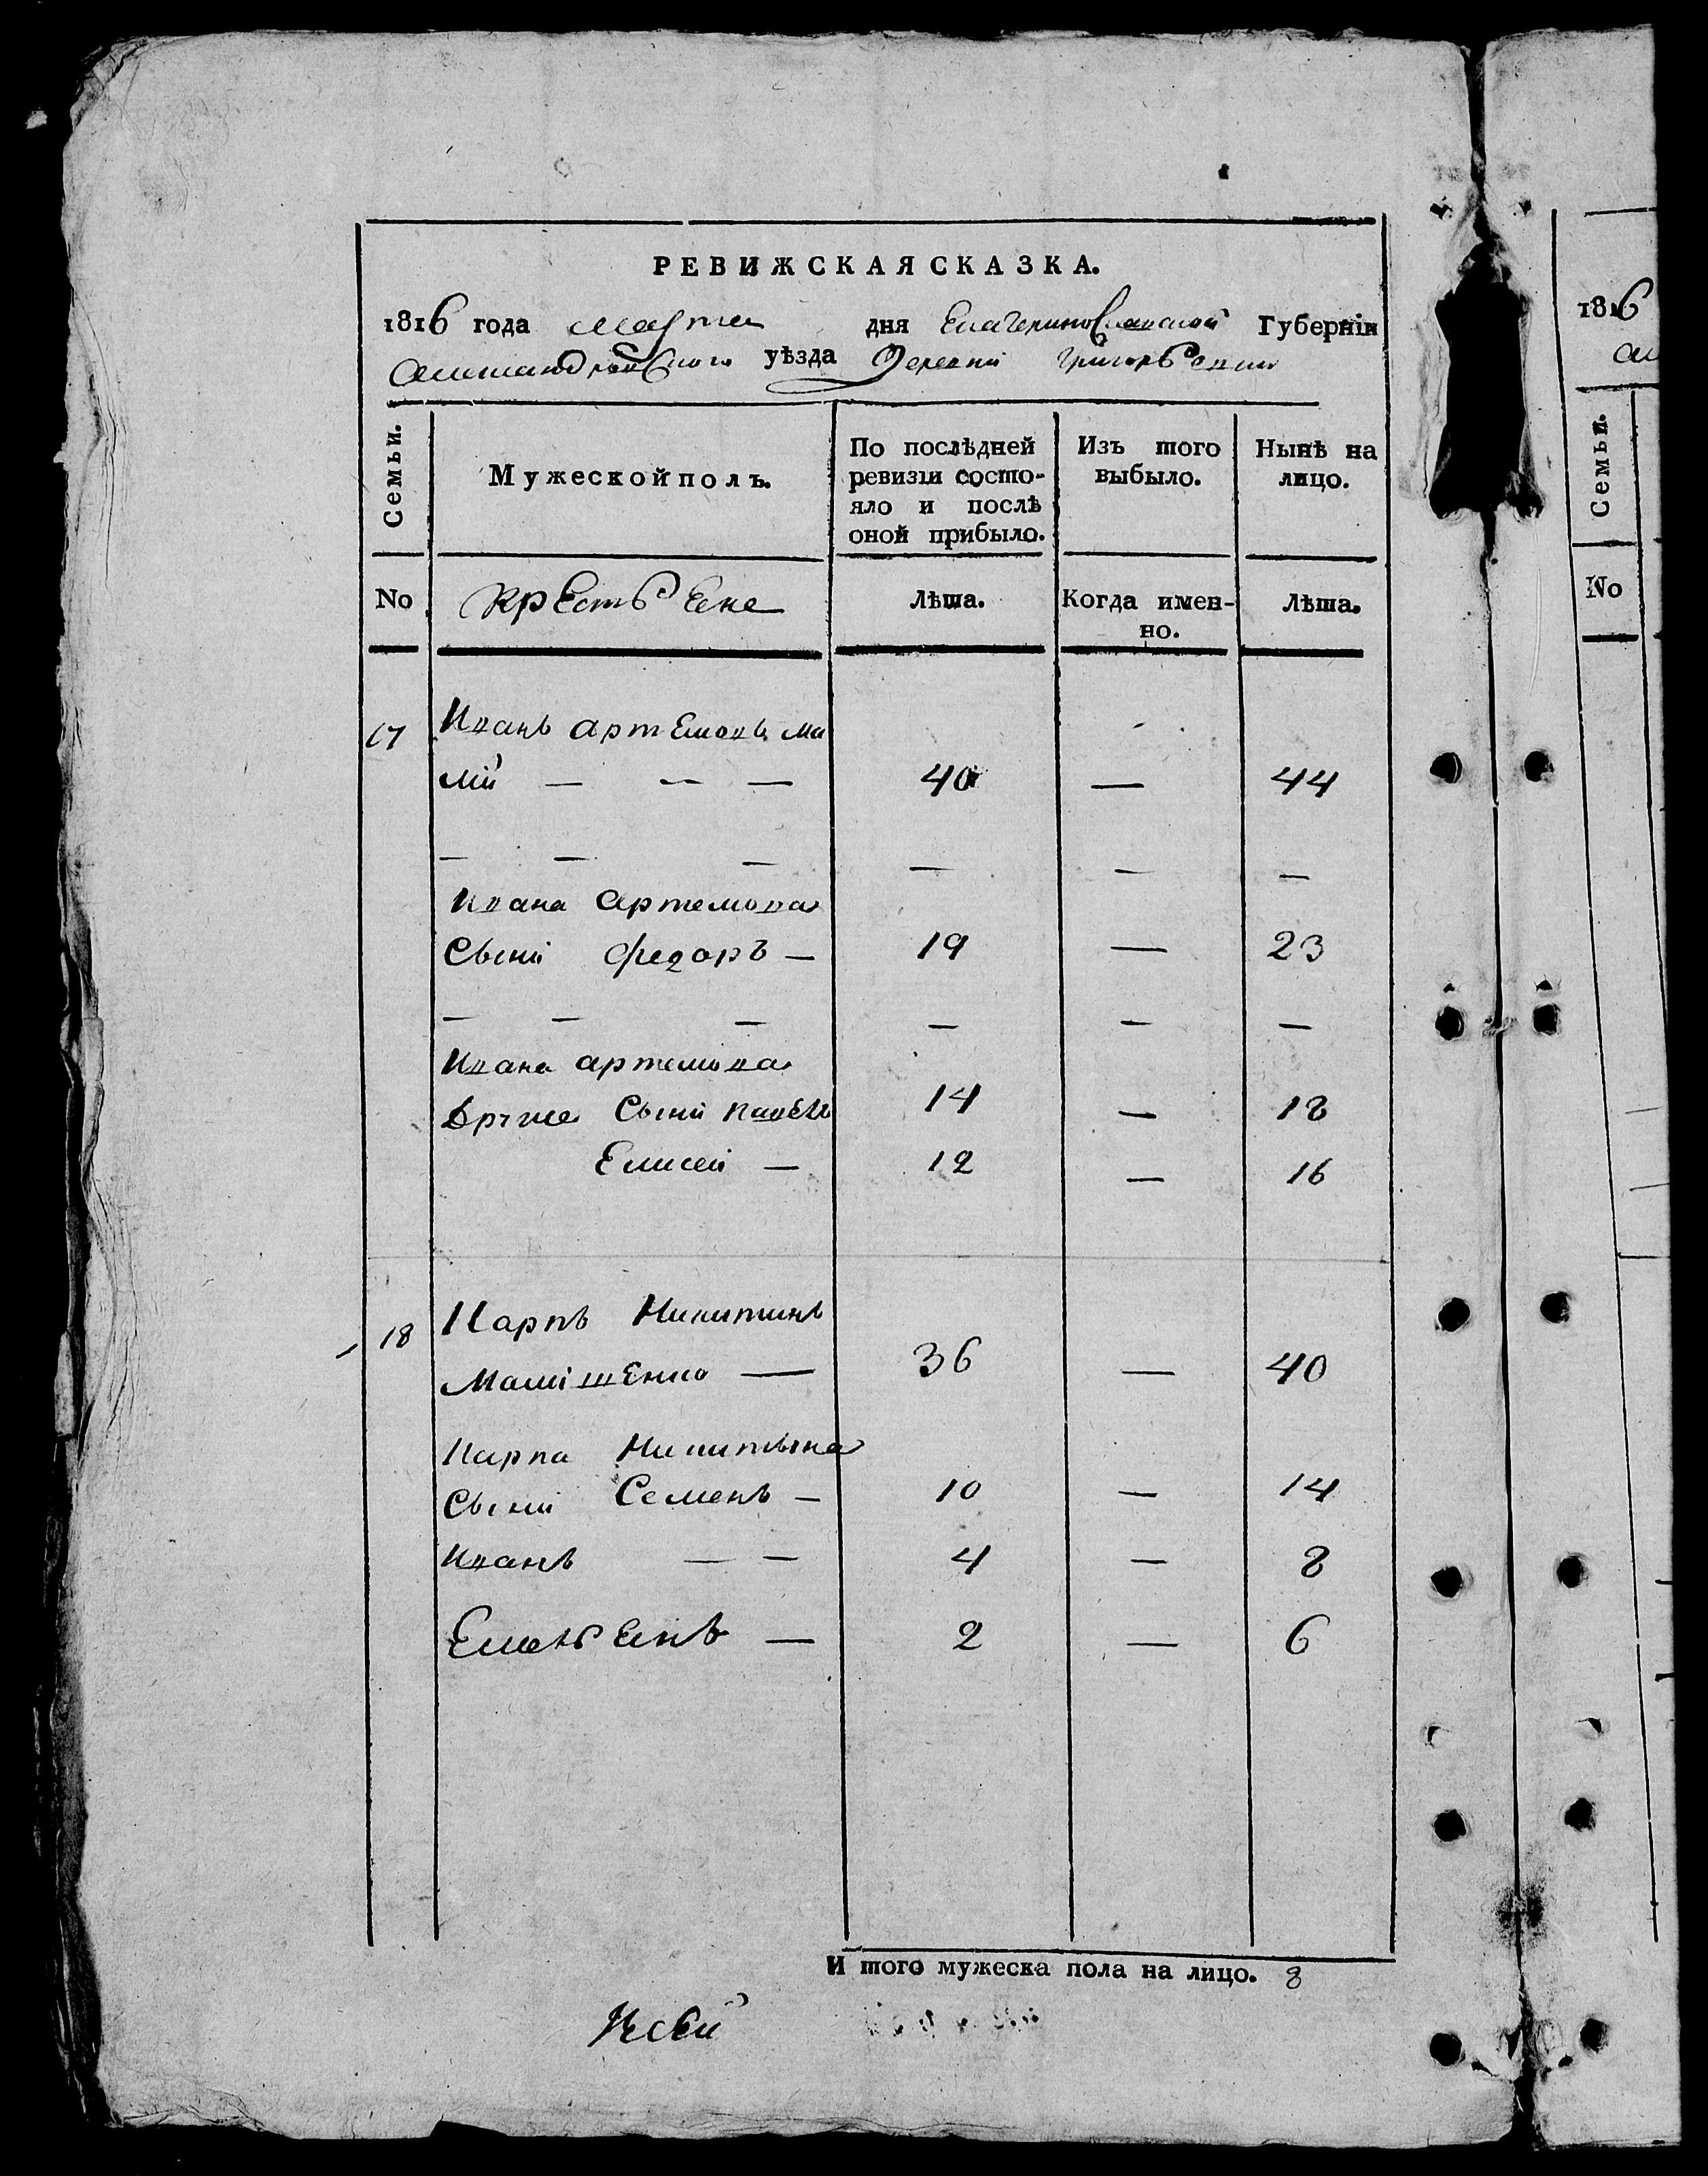 РЕВИЖСКАЯ СКАЗКА.
1816 года марта дня Екатеринославской Губерніи
Александровского уѣзда Деревни Григорьевки
Семьи.
Мужеской полъ.
По послѣдней ревизіи состо-
яло и послѣ
оной прибыло.
Изъ того
выбыло.
Нынѣ на
лицо.
No
крЕстьЕне
Лѣта.
Когда имен-
но.
Лѣта.
17
Иванъ артЕмовъ ма
лій — — —
40 — 44
— — — — — —
Ивана Артемова
Сыни федоръ — 19 — 23
— — — — — —
Ивана артемова
Сыни павЕлъ 14 — 18
Елисей — 12 — 16
18
Карпъ Никитинъ
— 36 — 40
Карпа Никитына
Сыни Семенъ — 10 — 14
Иванъ — — 4 — 8
ЕмельЕнъ — 2 — 6
И того мужеска пола на лицо. 8
1816
Семьи.
No